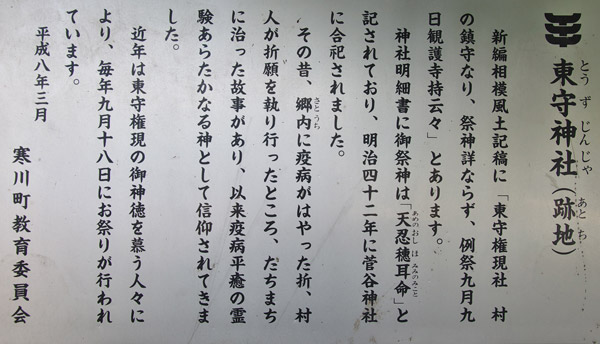 東守神社（跡地）
とうずじんじゃ　あとち
新編相模風土記稿に「東守権現社　村
の鎮守なり、祭神詳ならず、例祭九月九
日観護寺持云々」とあります。
神社明細書に御祭神は「天忍穂耳命」と
あめのおしほみみのみこと
記されており、明治四十二年に菅谷神社
に合祀されました。
その昔、郷内に疫病がはやった折、村
さとうち
人が祈願を執り行ったところ、たちまち
に治った故事があり、以来疫病平癒の霊
験あらたかなる神として信仰されてきま
した。
近年は東守権現の御神徳を慕う人々に
より、毎年九月十八日にお祭りが行われ
ています。
平成八年三月
寒川町教育委員会